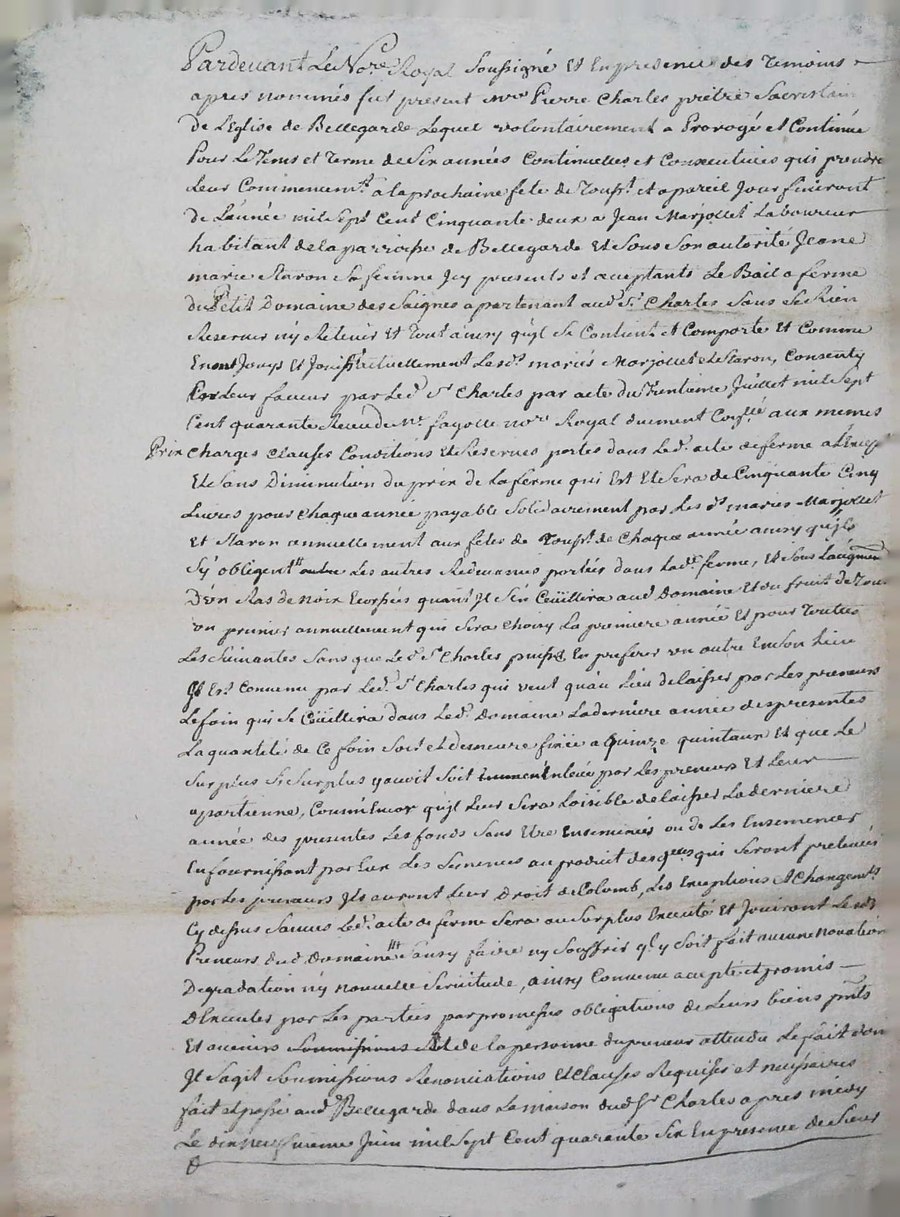 Pardevant Le No.re Royal Soussigné et En presence des Temoins
apres nommés fut present M.re Pierre Charles prêtre Sacristain
de L'Eglise de Bellegarde Lequel volontairement a Prorogé et Continué
Pour Le Tems et terme de Six années Continuelles et Consecutives qui prendre
Leur Commencem.t a la prochaine fête de Touss.ts et a pareil Jour finiront
de L'année mil Sept Cent Cinquante deux a Jean Marjollet Laboureur
habitant de la parroisse de Bellegarde Et Sous Son autorité Jeane
marie Staron Sa femme Icy presents et aceptants Le Bail a ferme
du Petit Domaine des Saignes apartenant aud. S.r Charles Sans Se Rien
Reserver ny Retenir Et Tout ainsy qu'jl Se Contient et Comporte Et Comme
En ont Jouys Et Jouissent actuellement Lesd. mariés Marjollet et Staron, Consenty
En Leur faveur par Led. S.r Charles par acte du Trentieme Juillet mil Sept
Cent quarante Receu de M.e fayolle no.re Royal duement Con.llé aux memes
Prix Charges Clauses Conditions et Reserves portés dans Led. acte de ferme
Et Sans Diminution du prix de La ferme qui Est Et Sera de Cinquante Cinq
Livres pour Chaque année payable Solidairement par Les d. mariés Marjollet
Et Staron annuellement aux fêtes de Touss.ts de Chaque année ainsy qu'jls
S'y obligent outre Les autres Redevances portées dans Lad. ferme, Et Sous
D'un Ras de noix Ecossées quand Jl S'en Ceüillira aud. Domaine Et du fruit de Tout
un prunier annuellement qui Sera Choisy La premiere année Et pour Toutes
Les Suivantes Sans que Led. S.r Charles puisse En preferer un autre En Son Lieu
Jl Est Convenu par Led. S.r Charles qui veut qu'au Lieu de Laisser par Les preneurs
Le foin qui Se Ceüillira dans Led. Domaine La derniere année des presentes
La quantité de Ce foin Soit et Demeure fixée a Quinze quintaux Et que Le
Surplus Si Surplus y avoit Soit Enlevé par Les preneurs Et Leur
apartienne, Comm'Encor qu'jl Leur Sera Loisible de Laisser La derniere
année des presentes Les fonds Sans Etre Ensemencés ou de Les Ensemencer
En fournissant par Eux Les Semences au produit desq.uels qui Seront prelevées
par Les preneurs Jls auront Leur Droit de Colomb, Les Exceptions et Changem.ts
Cy dessus Sauves Led. acte de ferme Sera au Surplus Executé Et Jouiront Lesd.
Preneurs dud. Domaine Sans y faire ny Souffrir q.l y Soit fait aucune novation
Degradation ny nouvelle Servitude, ainsy Convenu accepté et promis
d'Executer par Les parties par promesses obligations de Leurs biens pnts
Et avenirs Soumissions et de la personne du preneur attendu Le fait dont
Jl S'agit Soumissions Renonciations et Clauses Requises et necessaires
fait et passé aud. Bellegarde dans La maison dud. S.r Charles apres midy
Le dix neuf.ieme Juin mil Sept Cent quarante Six En presence de Sieur